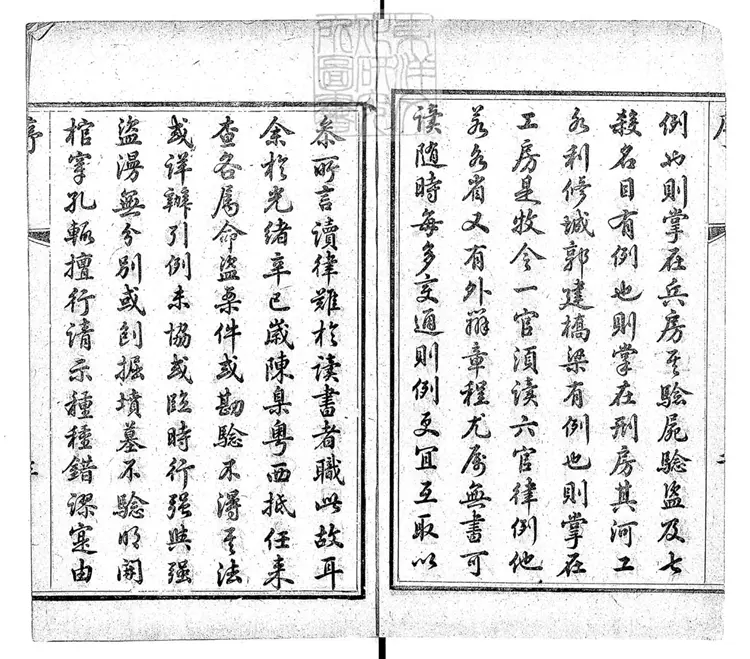 例也則掌在兵房其驗屍驗盜及七
殺名目有例也則掌在刑房其河工
水利修城郭建橋梁有例也則掌在
工房是牧令一官須读六官律例他
若各省又有外辦章程尤属無書可
读随時每多变通則例更宜互取以
叅所言讀律難於读書者職此故耳
余於光緒辛巳嵗陳臬粤西抵任来
查各属命盜案件或勘驗不得其法
或详辦引例未協或臨時行强與强
盜漫無分别或刨掘墳墓不驗明開
棺穿孔輒擅行请示種種錯谬寔由
序